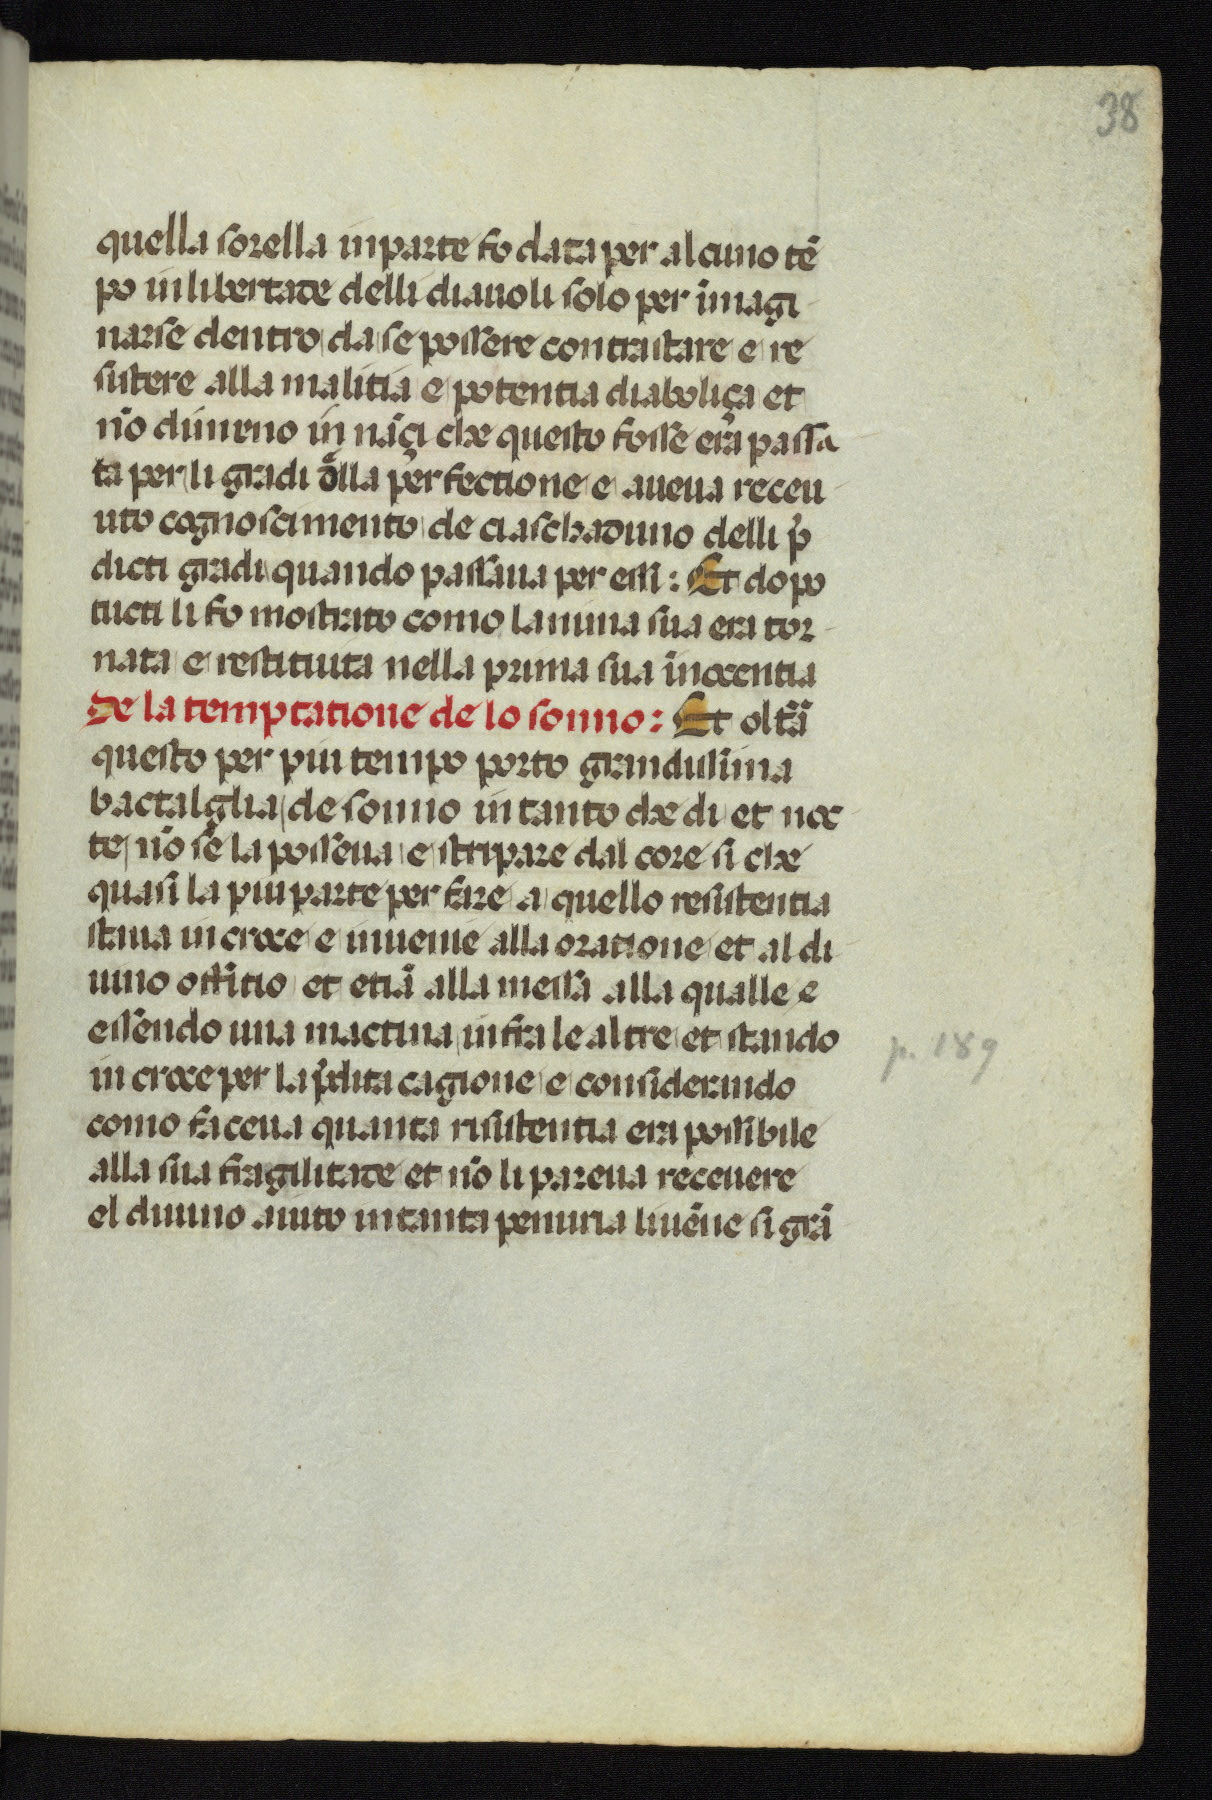 38
quella sorella inparte fo data per alcuno tē
po in libertade delli diauoli solo per īmagi
narse dentro da se possere contrastare e re
sistere alla malitia e potentia diaboliça et
nō dimeno in nāçi che questo fosse era passa
ta per li gradi ďlla perfectione e aueua receu
uto cognoscimento de ciaschaduno delli p̄
dicti gradi quando passaua per essi : Et dopo
tucti li fo mostrato como lanima sua era tor
nata e restituita nella prima sua īnocentia
De la temptatione de lo sonno : Et oltra
questo per piu tempo porto grandissima
bactalglia de sonno in tanto che di et noc
te nō se la posseua e stripare dal core si che
quasi la piu parte per fare a quello resistentia
staua in croce e niueniue alla oratione et al di
uino offitio et etiā alla messa alla qualle e
essendo una mactina infra le altre et stando
in croce per la p̄dita cagione e considerando
como faceua quanta risistentia era possibile
alla sua fragilitade et nō li pareua receuere
el diuino aiuto in tanta penuria li uēne si grā
p. 189